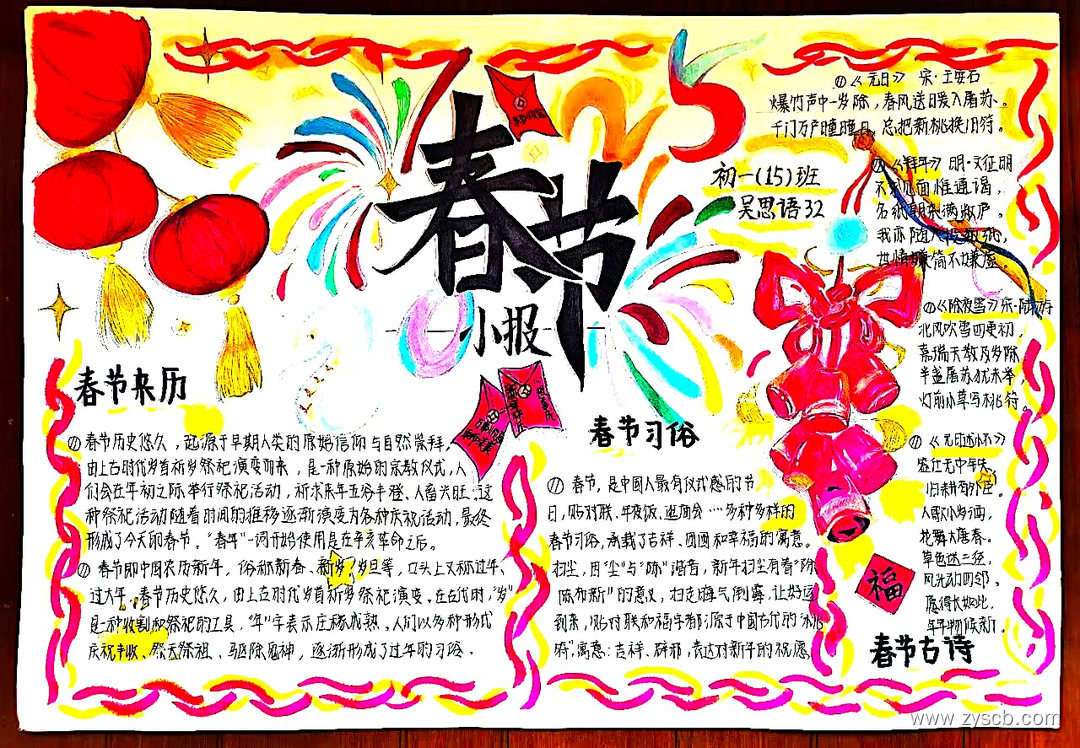 春节
小报
2025
初一(15)班
吴思语32
春节来历
① 春节历史悠久，起源于早期人类的原始信仰与自然崇拜，
由上古时代岁首祈岁祭祀演变而来，是一种原始的宗教仪式，人
们会在年初之际举行祭祀活动，祈求来年五谷丰登、人畜兴旺.这
种祭祀活动随着时间的推移逐渐演变为各种庆祝活动，最终
形成了今天的春节。"春节"一词开始使用是在辛亥革命之后。
② 春节即中国农历新年，俗称新春、新岁、岁旦等，口头上又称过年、
过大年。春节历史悠久，由上古时代岁首祈岁祭祀演变。在古代时，"岁"
是一种收割和祭祀的工具，"年"字表示庄稼成熟，人们以多种形式
庆祝丰收、祭天祭祖、驱除鬼神，逐渐形成了过年的习俗、
春节习俗
① 春节，是中国人最有仪式感的节
日，贴对联、年夜饭、逛庙会……多种多样的
春节习俗，承载了吉祥、团圆和幸福的寓意。
扫尘，因"尘"与"陈"谐音，新年扫尘有着"除
陈布新"的意义，扫走晦气倒霉，让好运
到来，贴对联和福字都源于中国古代的"桃
符"寓意：吉祥、辟邪，表达对新年的祝愿
① 《元日》 宋·王安石
爆竹声中一岁除，春风送暖入屠苏。
千门万户曈曈日，总把新桃换旧符。
② 《拜年》 明·文征明
不求见面惟通谒，
名纸朝来满敝庐。
我亦随人投数纸，
世情嫌简不嫌虚。
③ 《除夜雪》 宋·陆游
北风吹雪四更初
嘉瑞天教及岁除
半盏屠苏犹未举，
灯前小草写桃符。
④
人歌小岁酒，
花舞大唐春。
草色迷三径，
风光动四邻
愿得长如此，
年年物候新。
福
春节古诗
www.zyscb.com